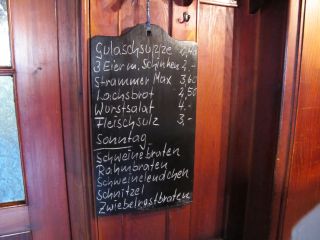 Gulaschsuppe 2,40
3 Eier m. Schinken 2,-
Strammer Max 3,60
Lachsbrot 2,50
Wurstsalat 4.-
Fleischsulz 3,-
Sonntag
Schweinebraten
Rahmbraten
Schweinelendchen
Schnitzel
Zwiebelrostbraten